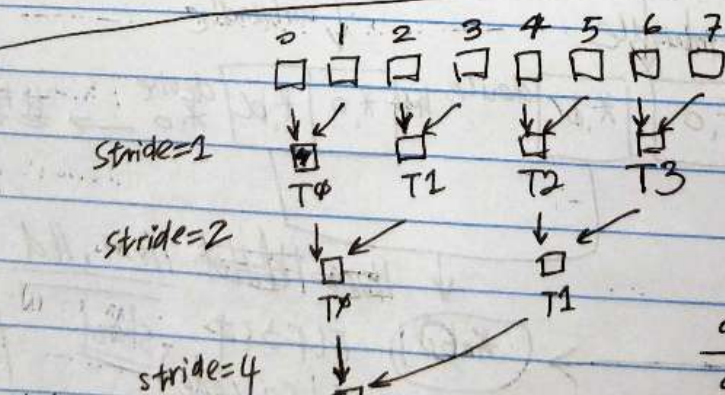 0 1 2 3 4 5 6 7
stride=1
T0 T1 T2 T3
stride=2
T0 T1
stride=4